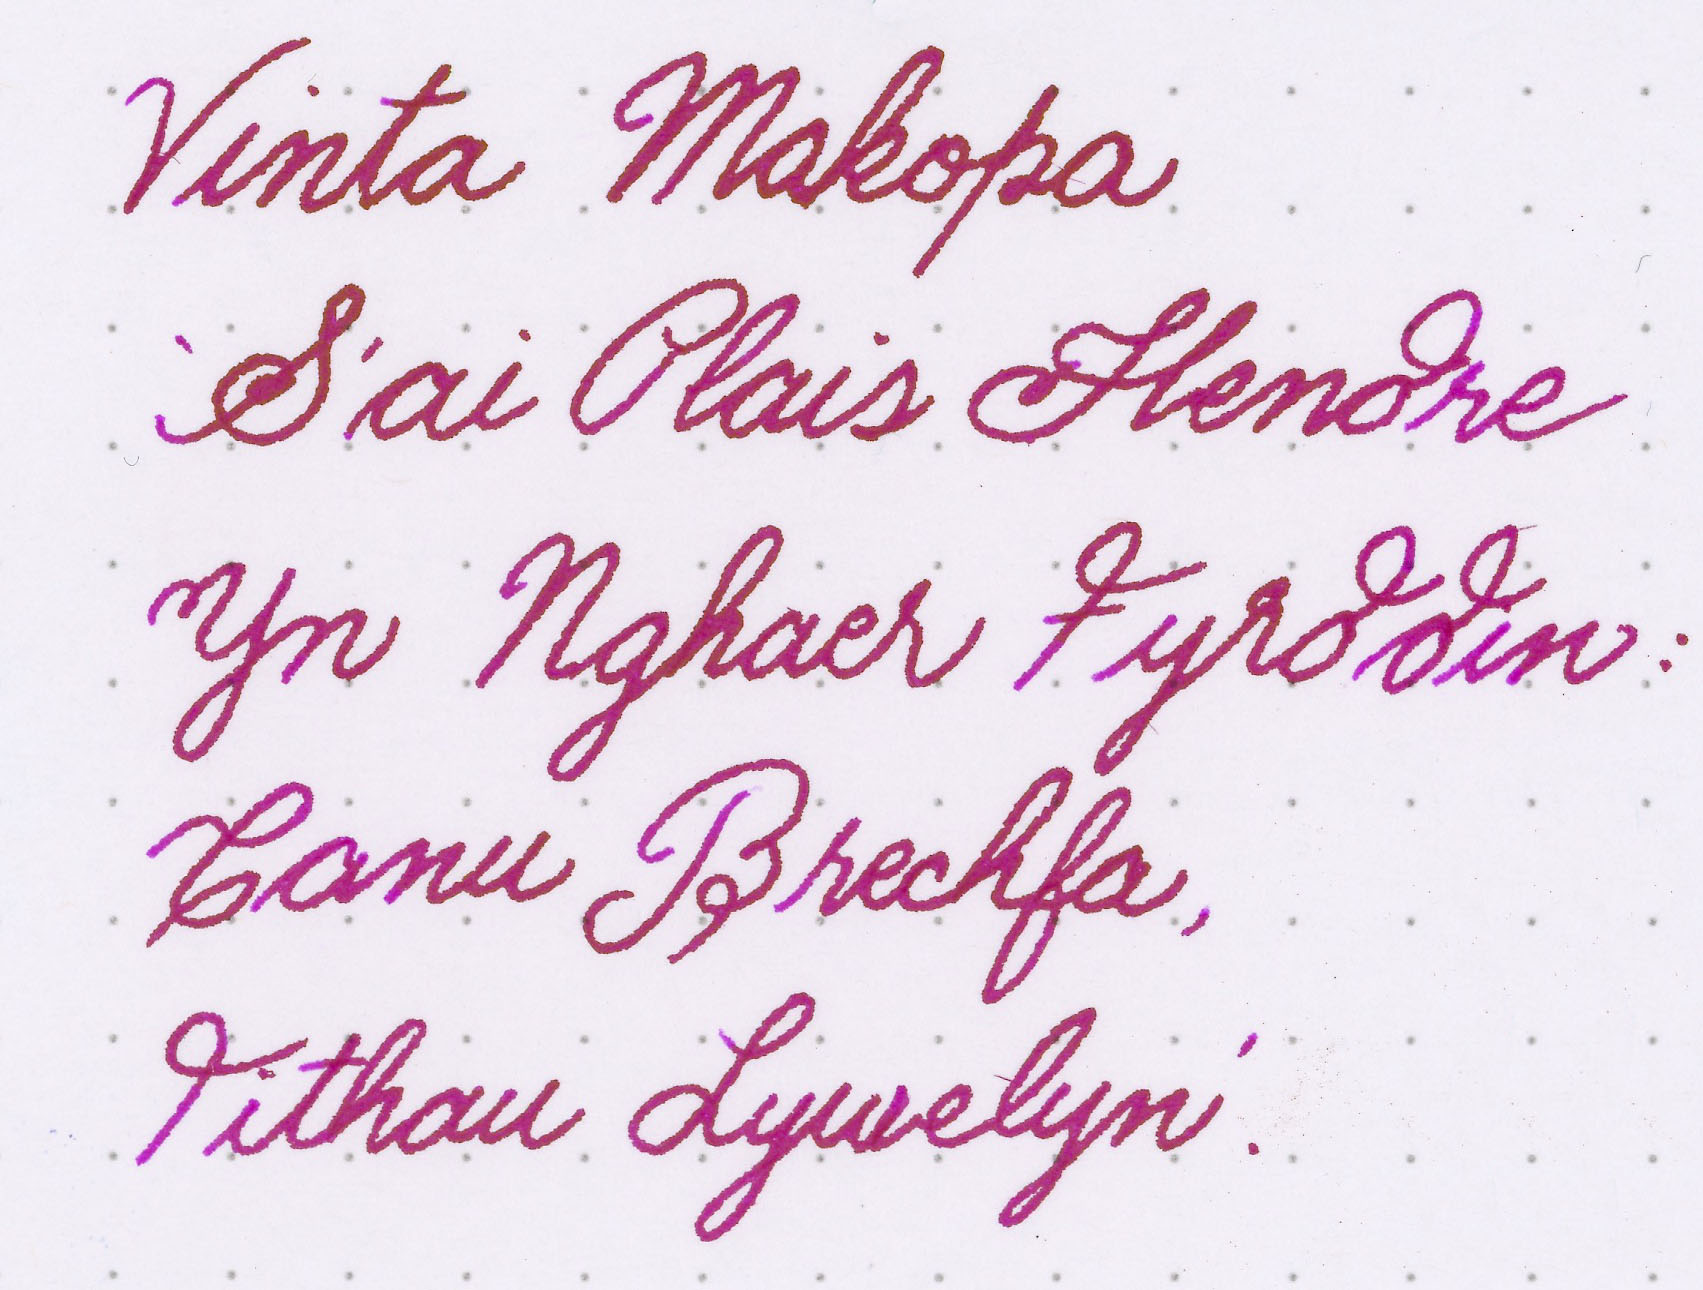 Vinta Makopa
'S'ai Plais Hendre
Yn Nghaer Fyrddin:
Canu Brechfa,
Tithau Lywelyn'.